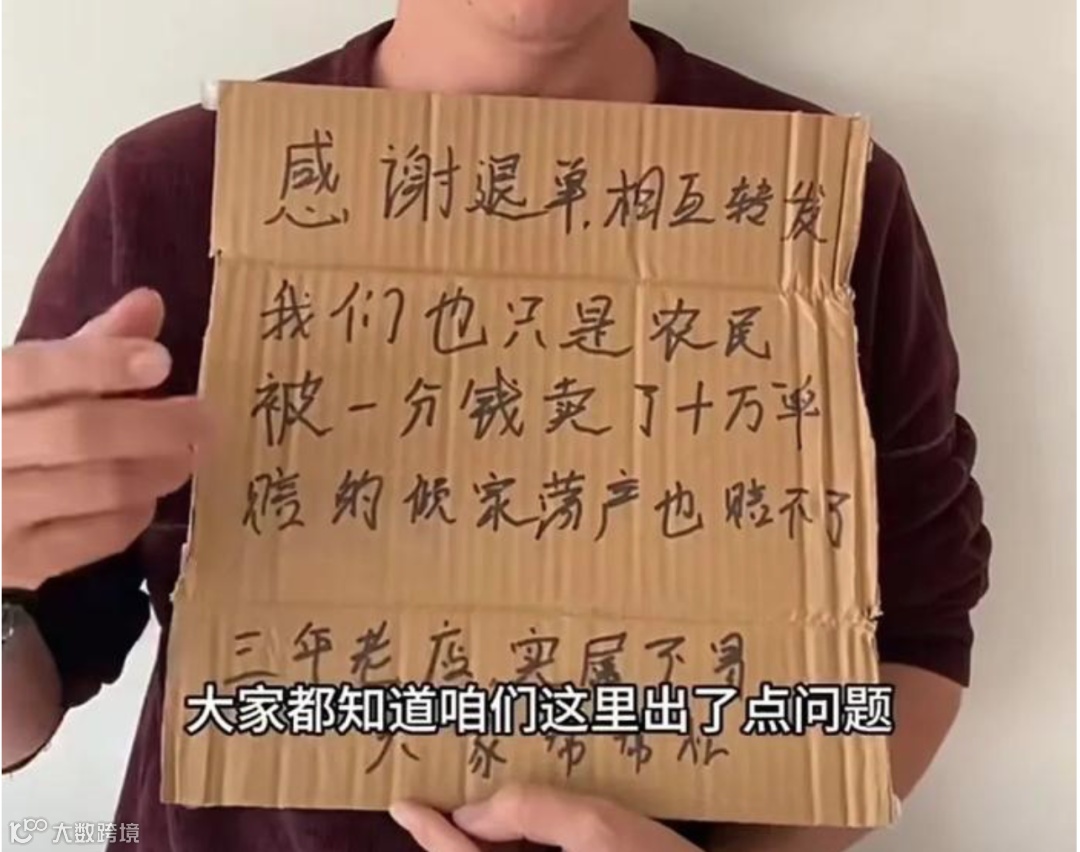 感谢退单,相互转发
我们也只是农民
被一分钱卖了十万单
赔的倾家荡产也赔不了
三年老店,实属不易
大家都知道咱们这里出了点问题
大家帮帮忙
大数跨境